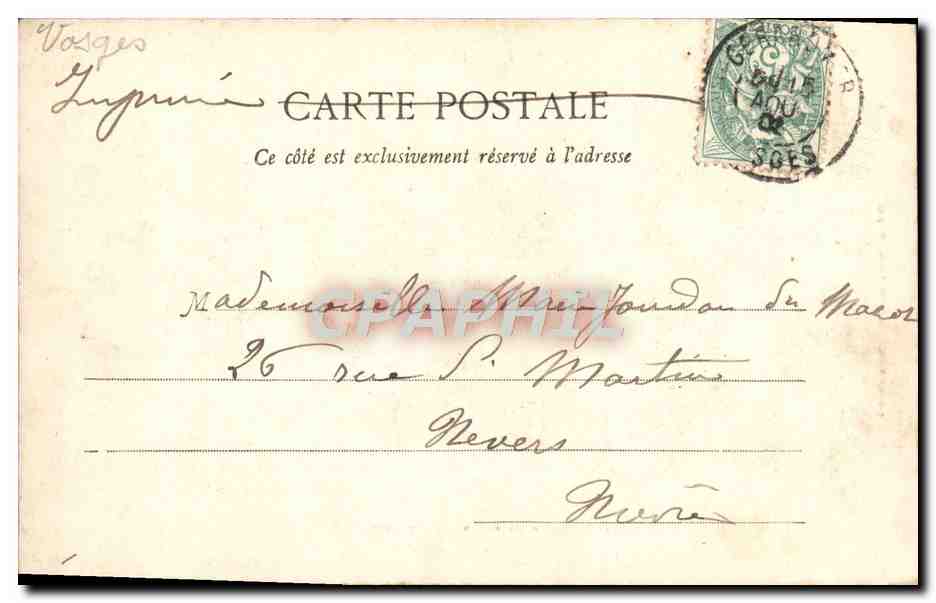 Vosges
Imprimé
CARTE POSTALE
Ce côté est exclusivement réservé à l'adresse
AOU
02
SGES
Mademoiselle Jourdan du
CPAPHIL
26 rue St Martin
Nevers
Nièvre